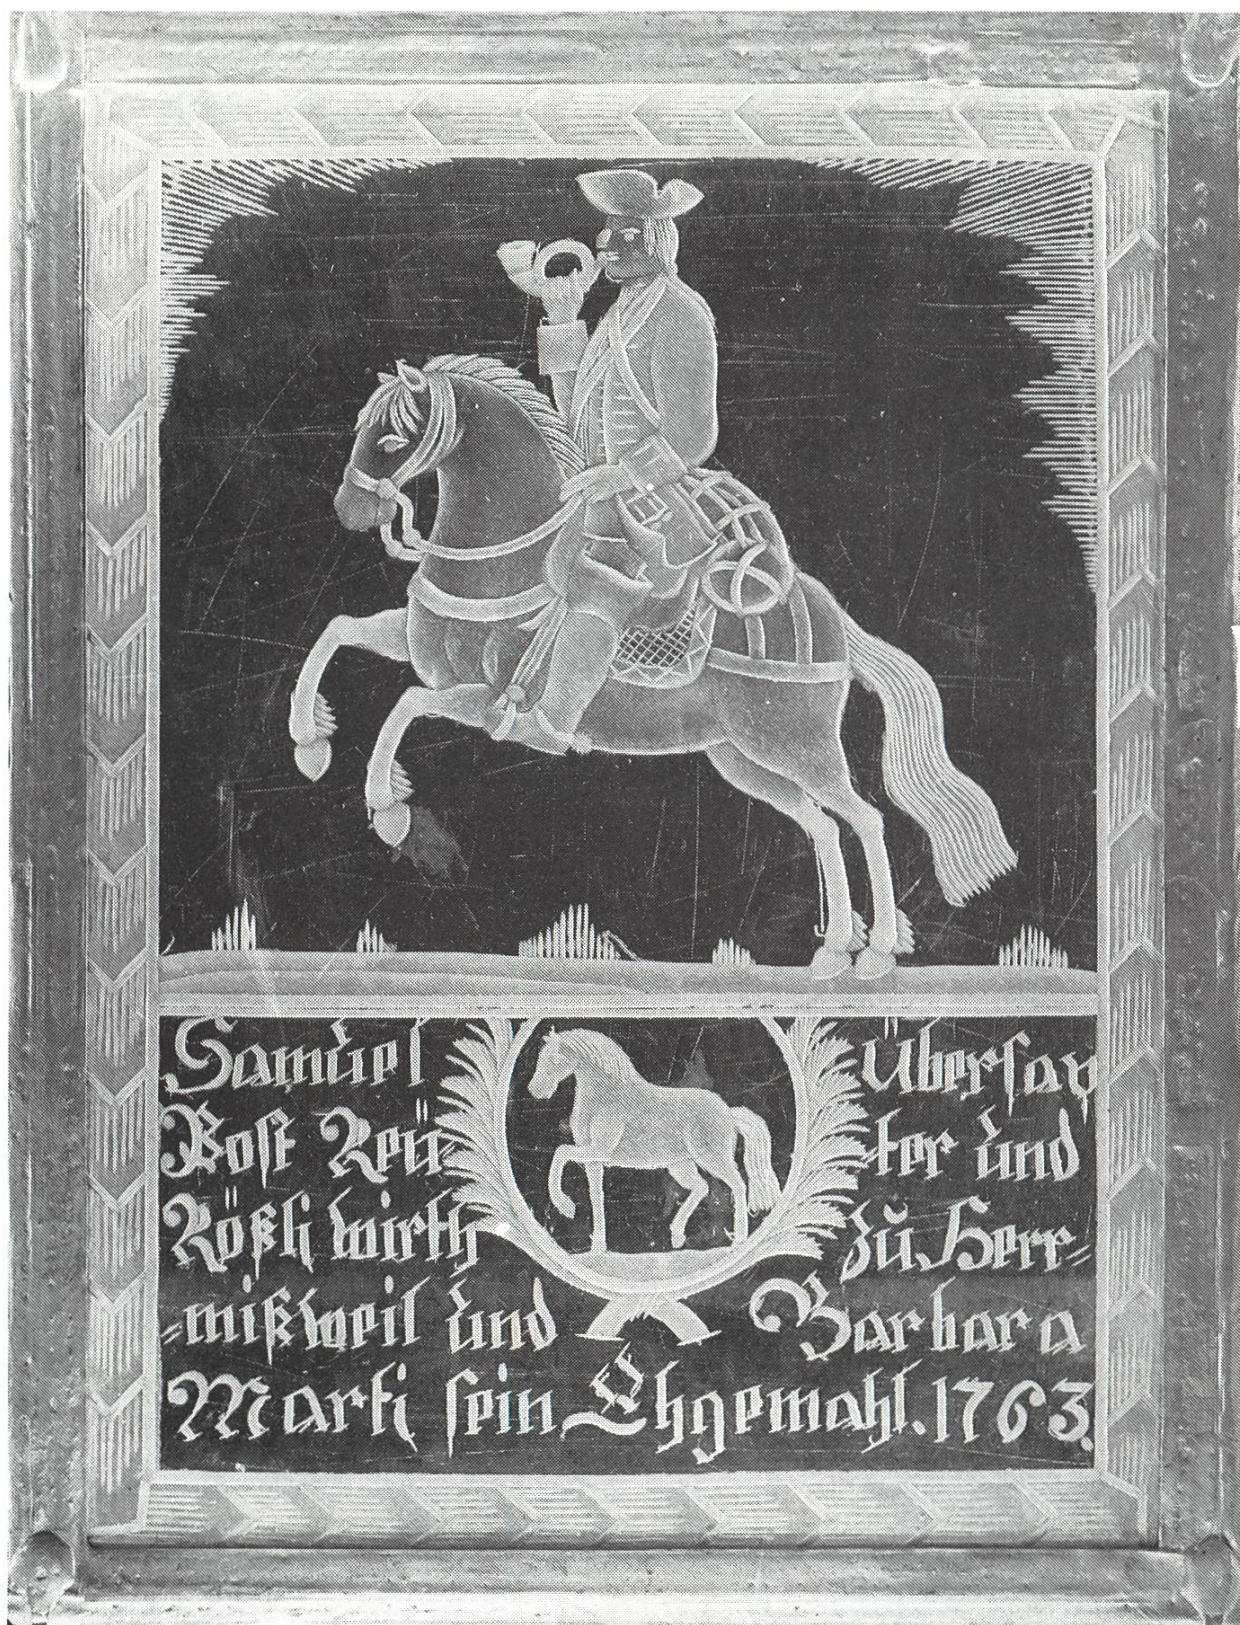 Samuel Übersax
Post Reü=ter und
Rößli wirth zu Herr=
=mißweil und Barbara
Marti sein Ehgemahl. 1763.